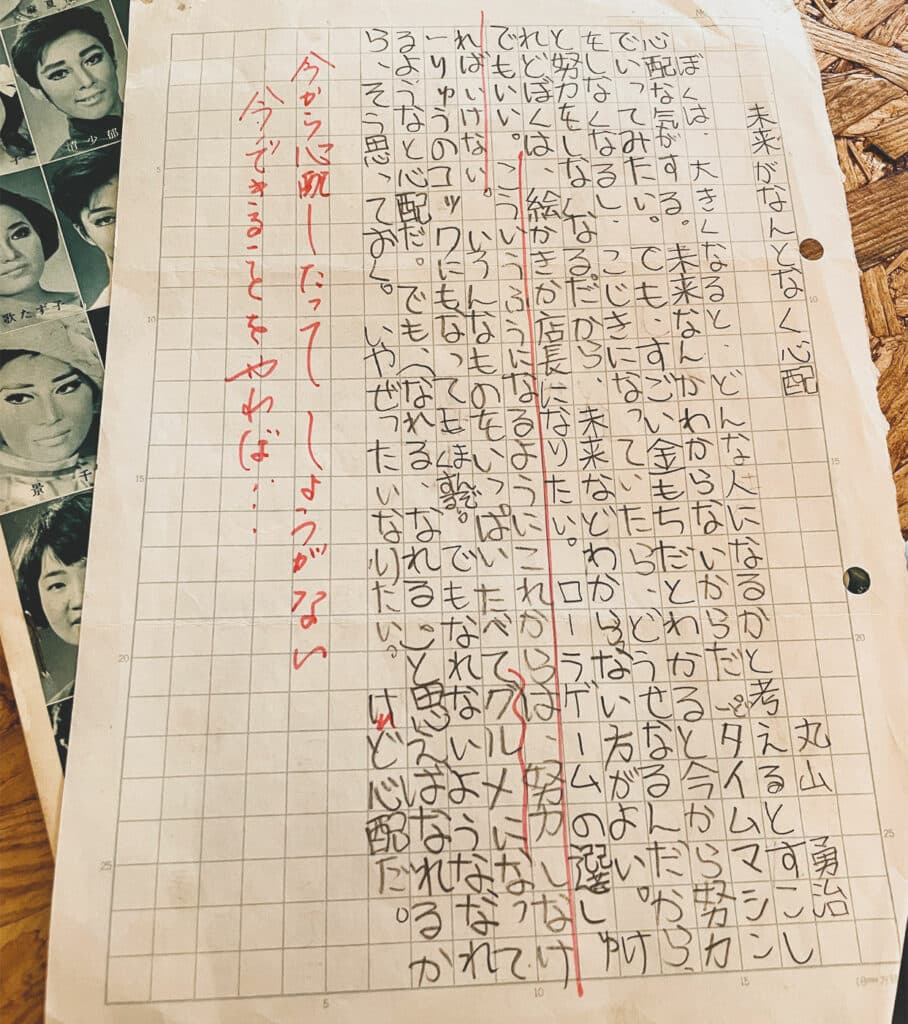 未来がなんとなく心配
丸山 勇治
ぼくは、大きくなると、どんな人になるかと考えるとすこし
心配な気がする。未来なんかわからないからだ。タイムマシン
でいってみたい。でも、すごい金もちだとわかると今から努力
をしなくなるし、こじきになっていたら、どうせなるんだから、
と努力をしなくなる。だから、未来などわからない方がよい。け
れどぼくは、絵かきか店長になりたい。ローラゲームの選しゅ
でもいい。こういうふうになるようにこれからは、努力しなけ
ればいけない。いろんなものをいっぱいたべてグルメになって
一りゅうのコックにもなってもまんぞくする。でもなれないようななれ
るようなと心配だ。でも、(なれる、なれる。)と思えばなれるか
ら、そう思っておく。いやぜったいなりたい。けれど心配だ。
今から心配したってしょうがない
今できることをやわば…